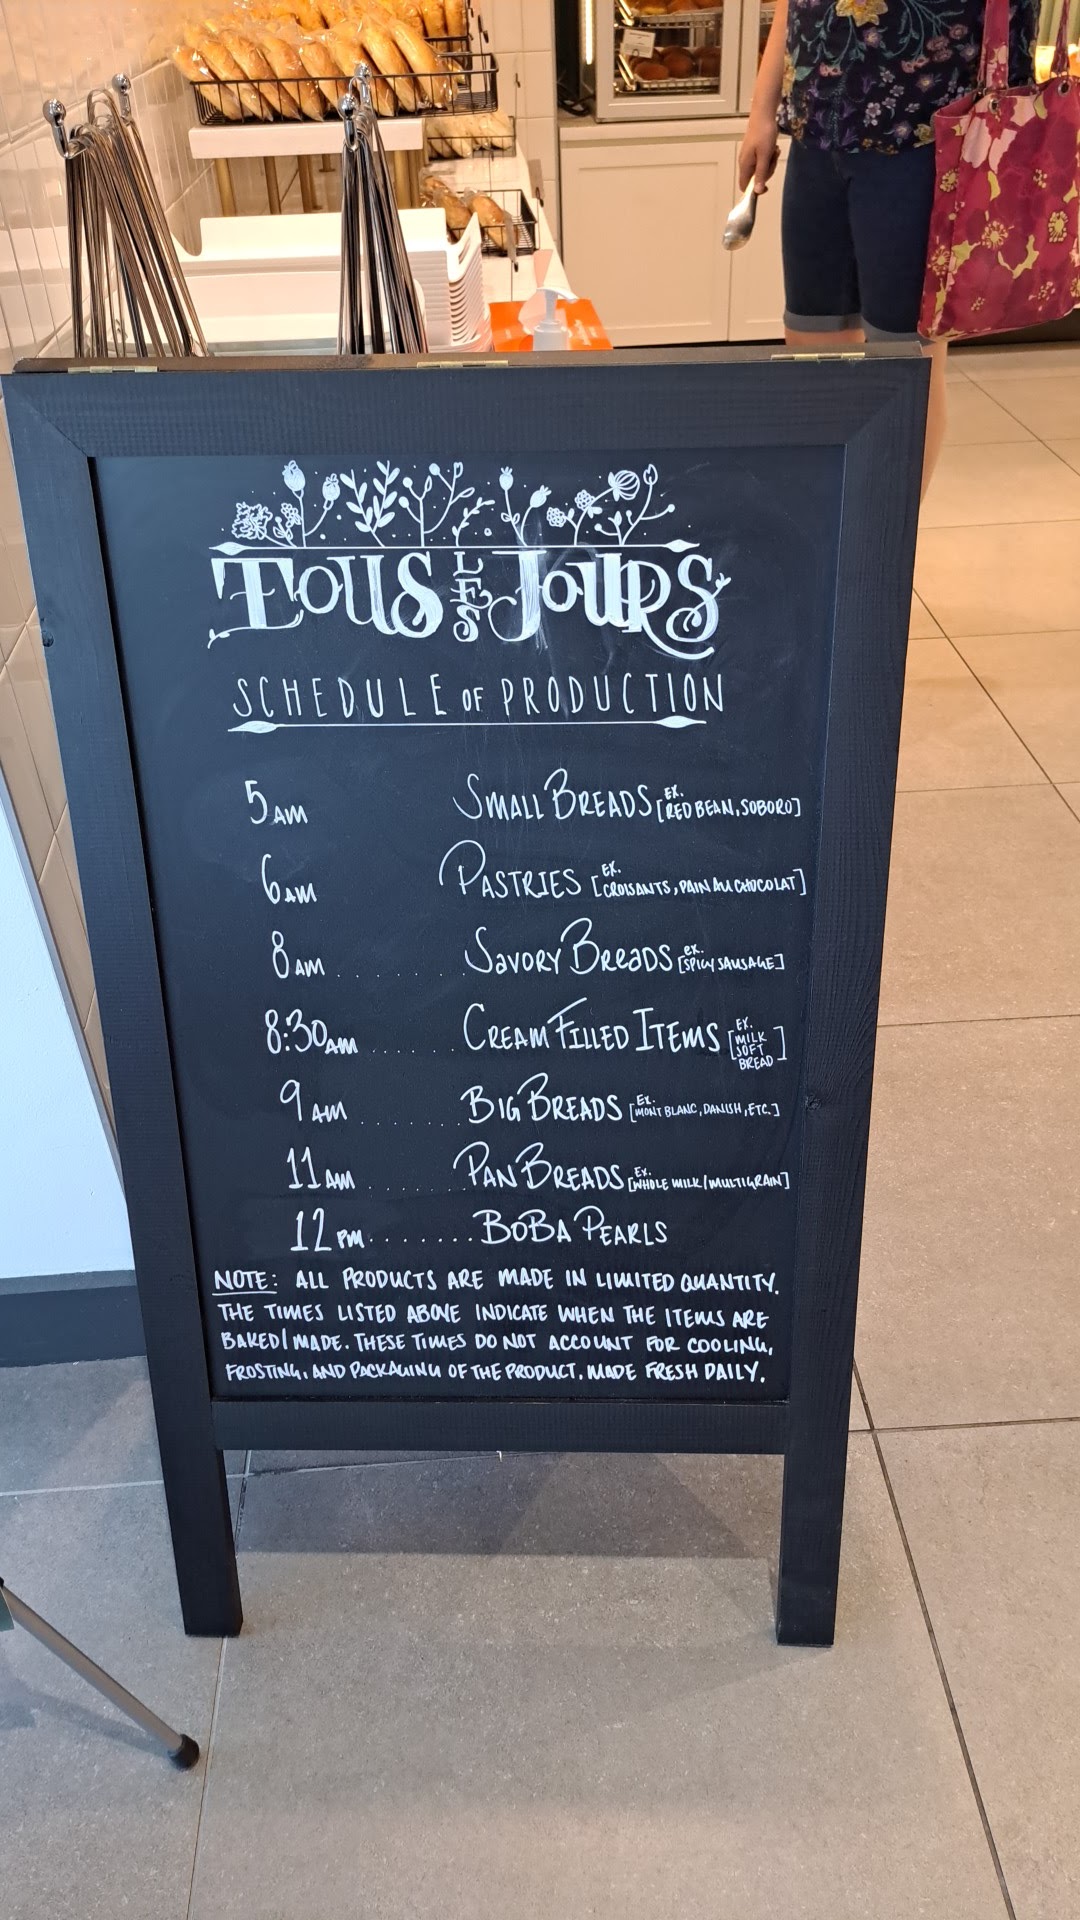 TOUS LES JOURS
SCHEDULE OF PRODUCTION
5AM SMALL BREADS [EX. RED BEAN, SOBORO]
6AM PASTRIES [EX. CROISANTS, PAIN AU CHOCOLAT]
8AM ........ SAVORY BREADS [EX. SPICY SAUSAGE]
8:30AM ...... CREAM FILLED ITEMS [EX. MILK SOFT BREAD]
9AM ....... BIG BREADS [EX. MONT BLANC, DANISH, ETC.]
11AM ....... PAN BREADS [EX. WHOLE MILK/MULTIGRAIN]
12PM ....... BOBA PEARLS
NOTE: ALL PRODUCTS ARE MADE IN LIMITED QUANTITY.
THE TIMES LISTED ABOVE INDICATE WHEN THE ITEMS ARE
BAKED/MADE. THESE TIMES DO NOT ACCOUNT FOR COOLING,
FROSTING, AND PACKAGING OF THE PRODUCT. MADE FRESH DAILY.